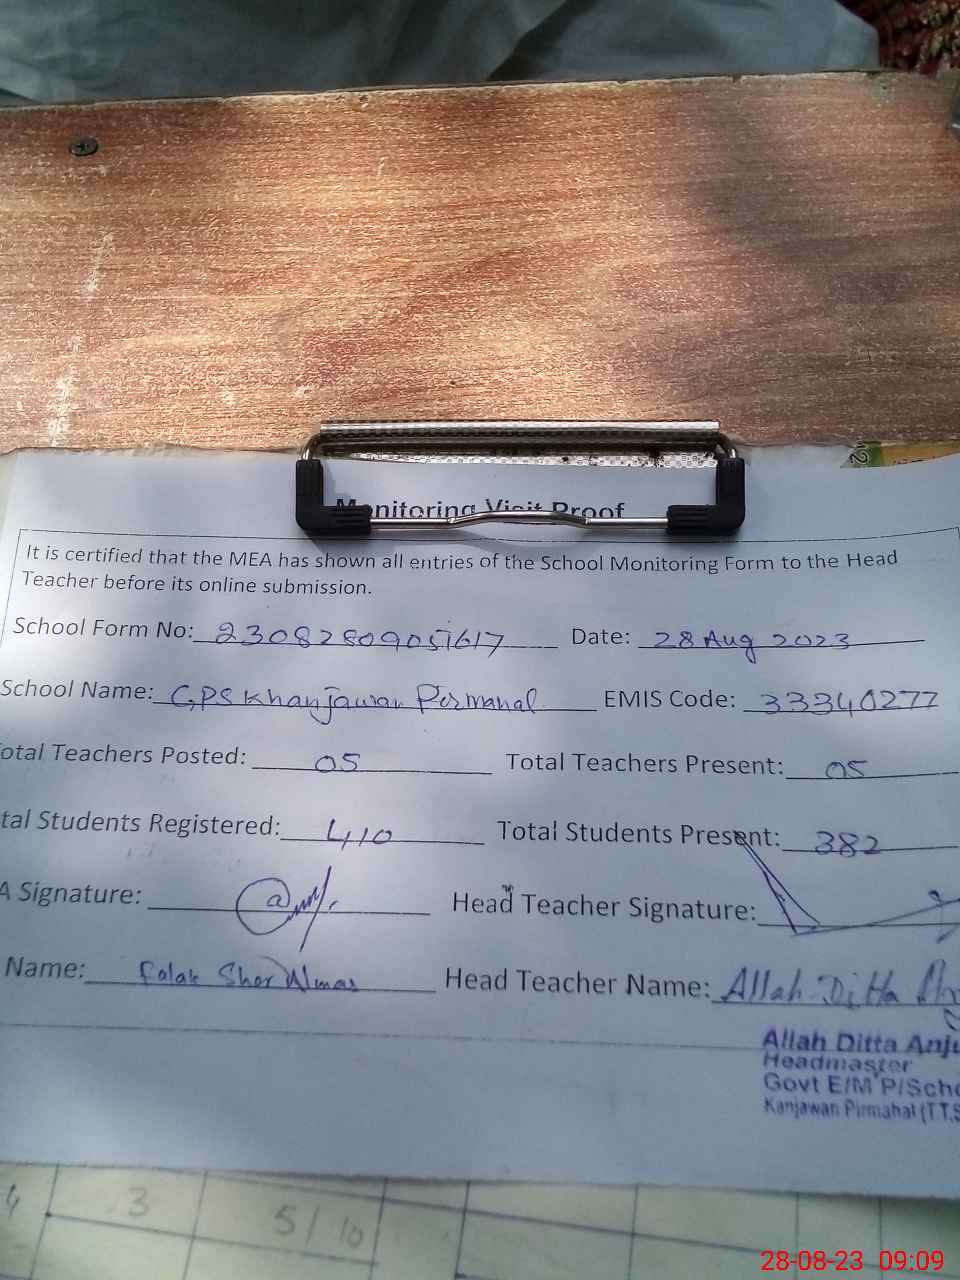 Monitoring Visit Proof
It is certified that the MEA has shown all entries of the School Monitoring Form to the Head
Teacher before its online submission.
School Form No: 23082809051617 Date: 28 Aug 2023
School Name: GPS Khanjawan Pirmahal EMIS Code: 33340277
otal Teachers Posted: 05 Total Teachers Present: 05
tal Students Registered: 410 Total Students Present: 382
A Signature: Head Teacher Signature:
Name: Falak Sher Almas Head Teacher Name: Allah Ditta
Allah Ditta Anju
Headmaster
Govt E/M P/Scho
Kanjawan Pirmahal (T.T.S
4 3 5/10
28-08-23 09:09